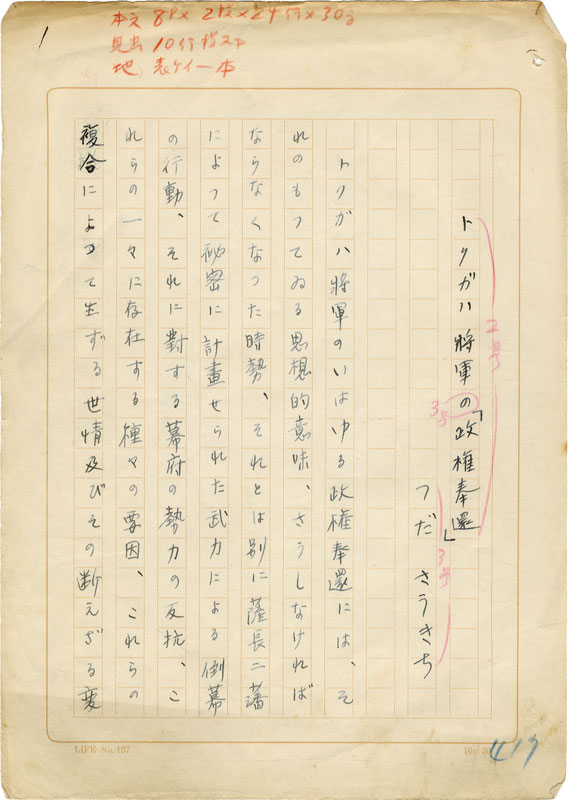 本文 8P× 2段×24行×30字
見出 10行
地 表ケイ一本
トクガハ將軍の「政権奉還」
2号
3号
つだ さうきち
3号
トクガハ將軍のいはゆる政権奉還には、そ
れのもつてゐる思想的意味、さうしなければ
ならなくなつた時勢、それとは別に薩長二藩
によつて祕密に計畫せられた武力による倒幕
の行動、それに對する幕府の勢力の反抗、こ
れらの一々に存在する種々の要因、これらの
複合によつて生ずる世情及びその断えざる変
LIFE No. 157
10×20